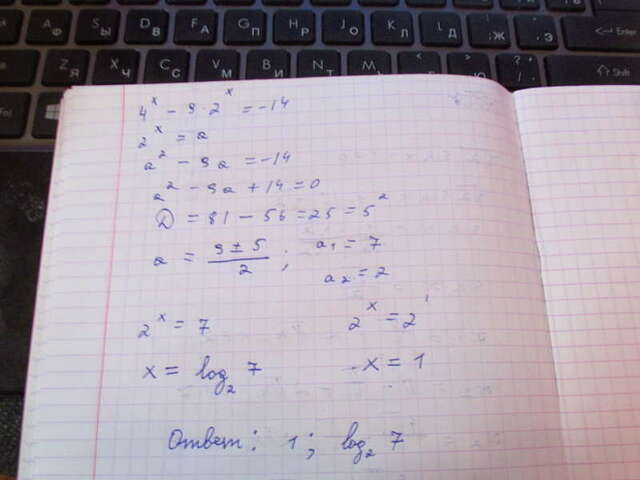 Ф Ы В А П Р О Л Д Ж Э Enter
Z Я X Ч C С V М B И N Т M Ь Shift
4^x - 9·2^x = -14
2^x = a
a^2 - 9a = -14
a^2 - 9a + 14 = 0
D = 81 - 56 = 25 = 5^2
a = (9 ± 5)/2 ; a₁ = 7
a₂ = 2
2^x = 7 2^x = 2^1
x = log₂ 7 x = 1
Ответ: 1; log₂ 7